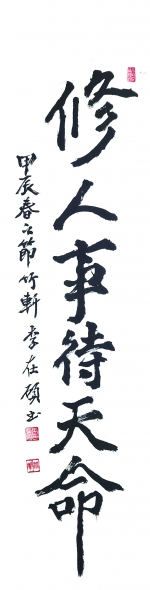 修人事待天命
甲辰春之節 竹軒 李在碩書